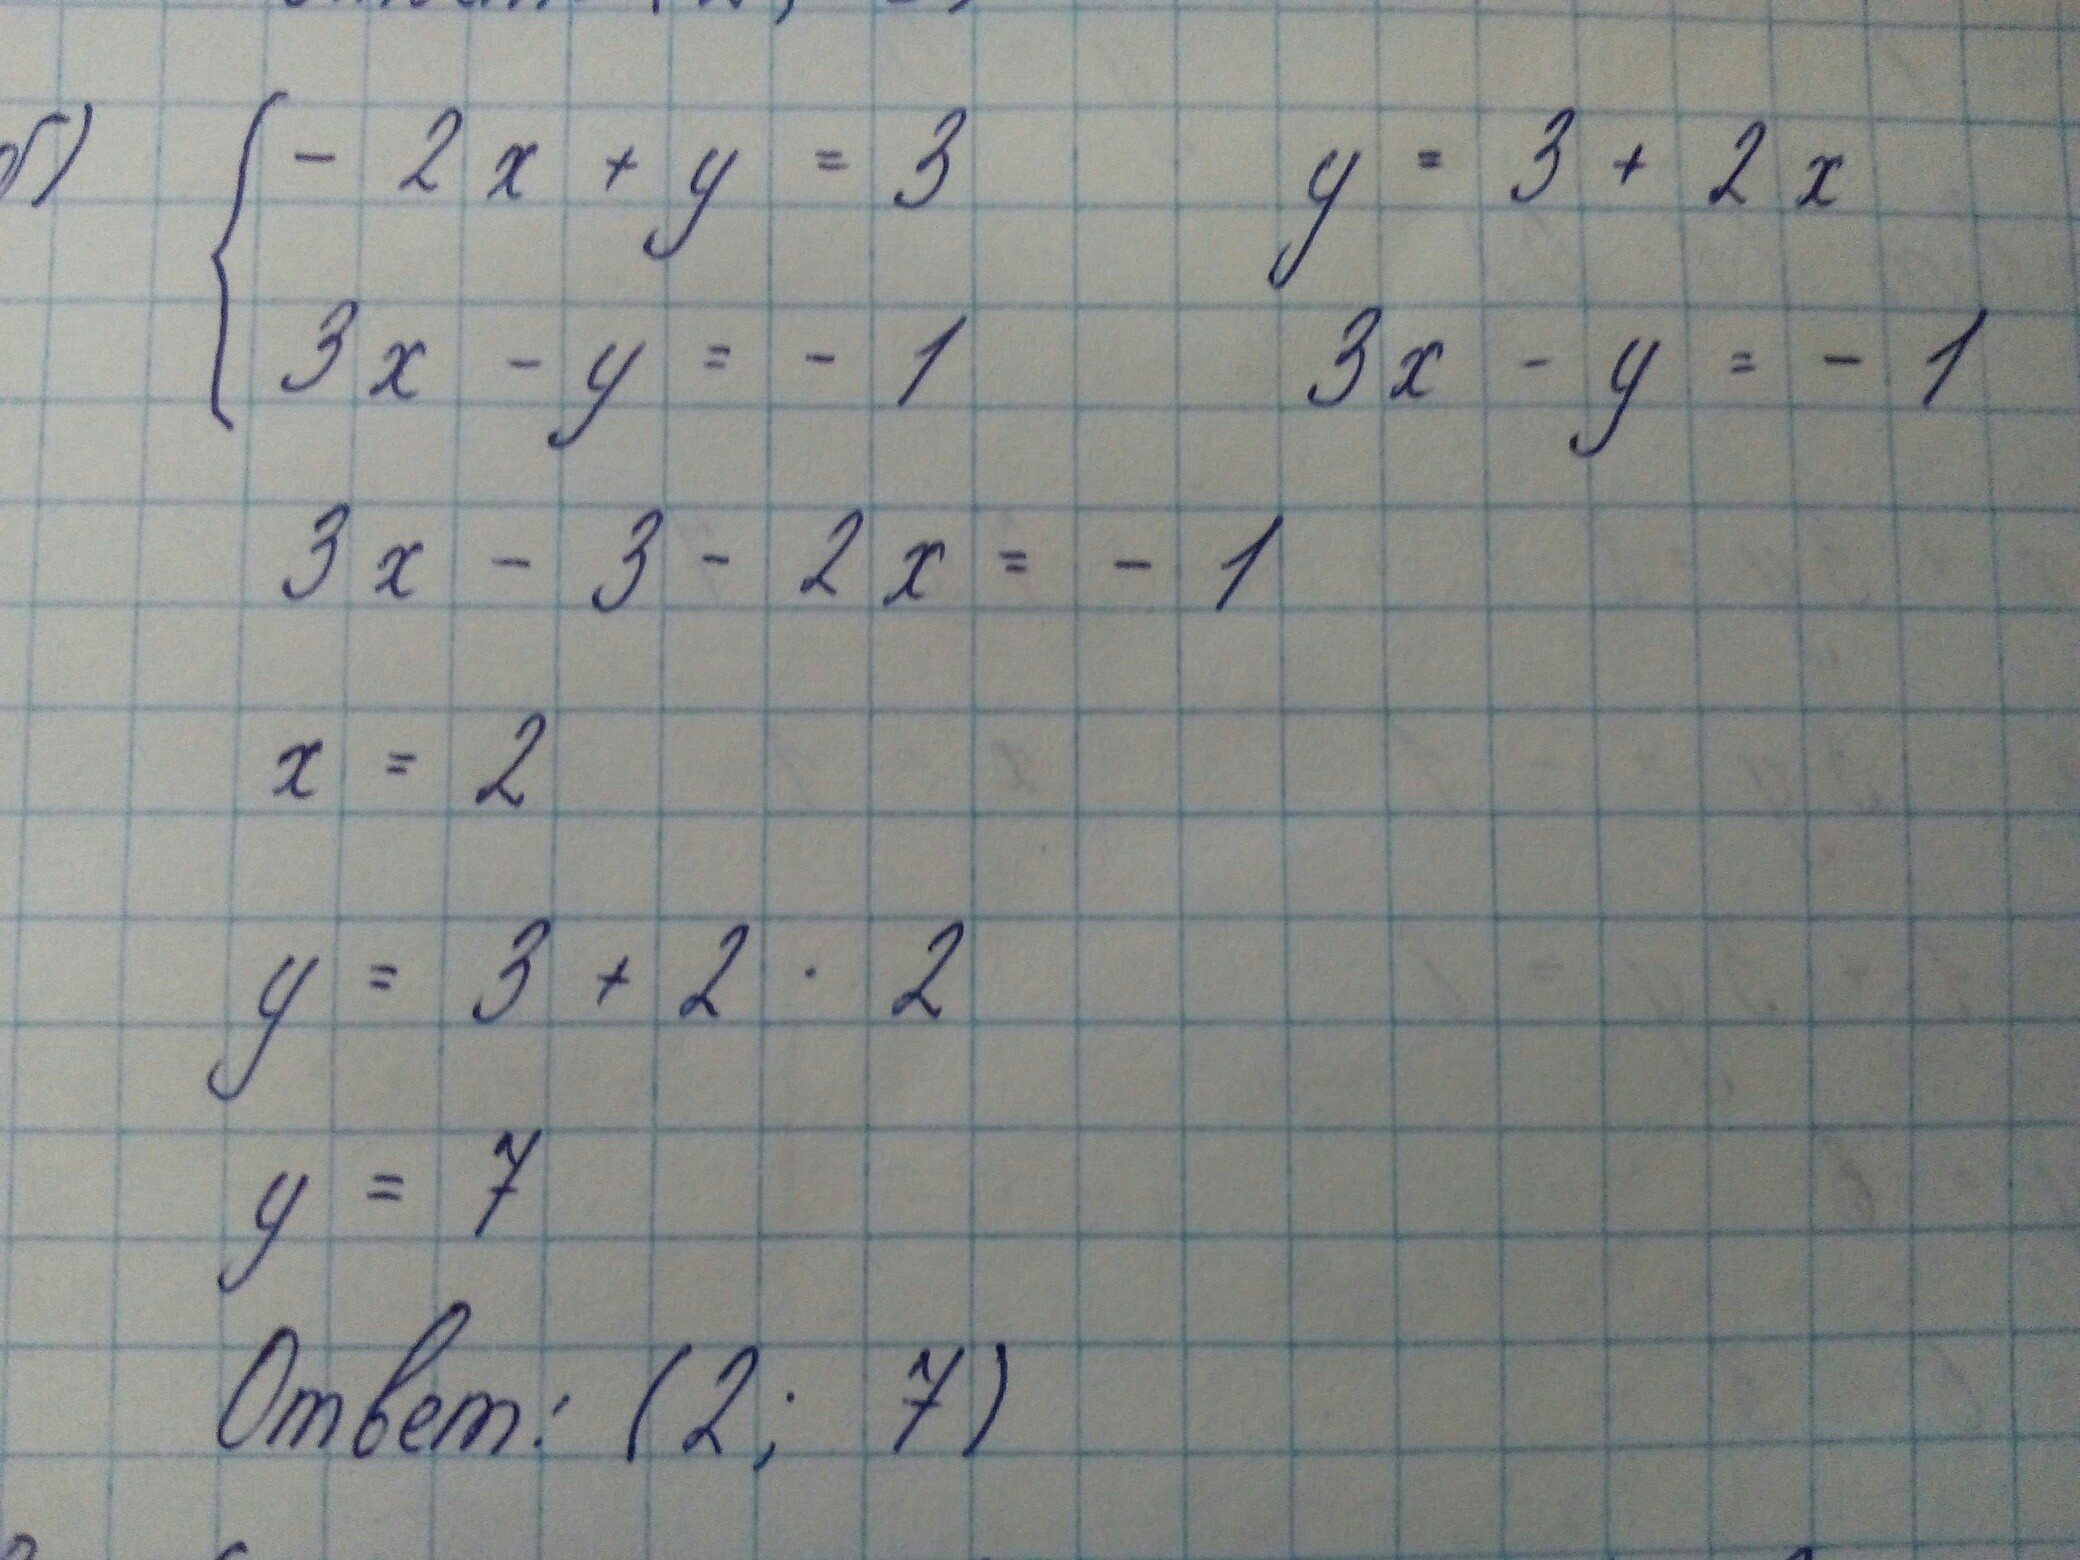 б) { - 2x + y = 3     y = 3 + 2x
3x - y = - 1     3x - y = - 1
3x - 3 - 2x = - 1
x = 2
y = 3 + 2 · 2
y = 7
Ответ: (2; 7)